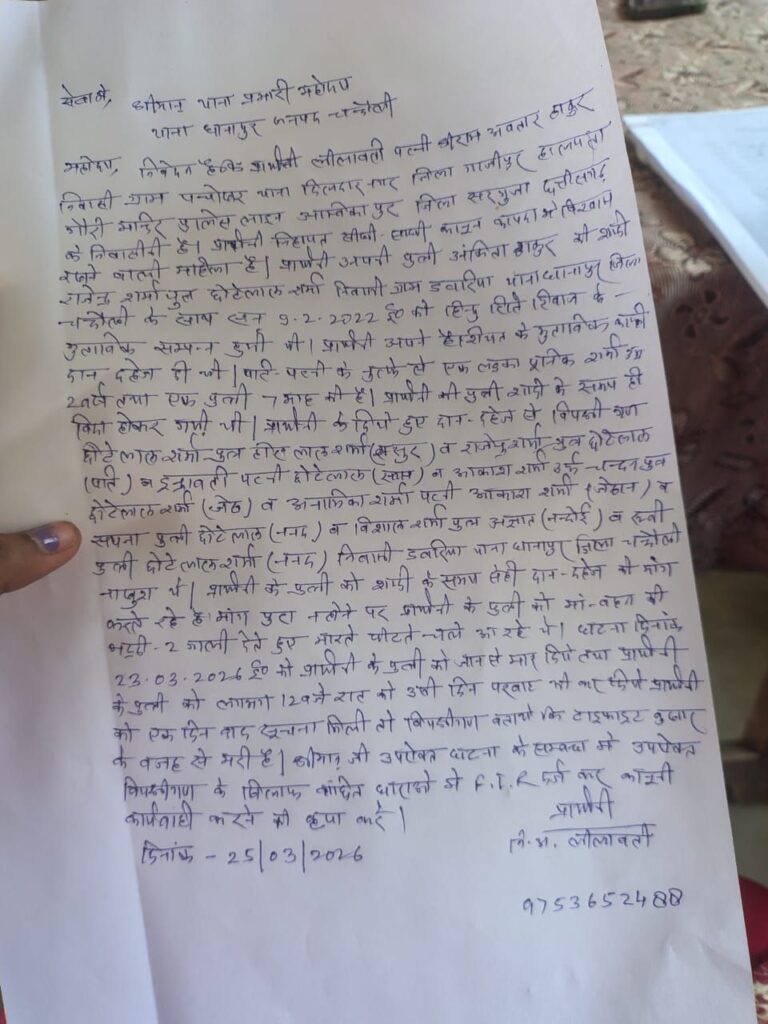 सेवा में,
श्रीमान् थाना प्रभारी महोदय
थाना धानापुर जनपद चन्दौली
महोदय, निवेदन है कि प्रार्थीनी लीलावती पत्नी श्रीराम अवतार ठाकुर
निवासी ग्राम थाना दिलदार नगर जिला गाजीपुर हालपता
गौरी मन्दिर पुलिस लाइन अम्बिकापुर जिला सरगुजा छत्तीसगढ़
के निवासीनी है। प्रार्थीनी निहायत सीधी-साधी कानून कायदा में विश्वास
रखने वाली महिला है। प्रार्थीनी अपनी पुत्री अंकिता ठाकुर की शादी
राजेन्द्र शर्मा पुत्र छोटेलाल शर्मा निवासी ग्राम डबरिया थाना धानापुर जिला
चन्दौली के साथ सन 9.2.2022 ई० को हिन्दु रिति रिवाज के
मुताबिक सम्पन्न हुयी थी। प्रार्थीनी अपने हैशियत के मुताबिक काफी
दान दहेज दी थी। पति-पत्नी के से एक लड़का शर्मा उम्र
2 वर्ष तथा एक पुत्री 7 माह की है। प्रार्थीनी की पुत्री शादी के समय ही
विदा होकर गयी थी। प्रार्थीनी के दिये हुए दान-दहेज से विपक्षी गण
छोटेलाल शर्मा पुत्र लाल शर्मा (ससुर) व राजेन्द्र शर्मा पुत्र छोटेलाल
(पति) व इन्द्रावती पत्नी छोटेलाल (सास) व आकाश शर्मा उर्फ चन्दन पुत्र
छोटेलाल शर्मा (जेठ) व अनामिका शर्मा पत्नी आकाश शर्मा (जेठान) व
सपना पुत्री छोटेलाल (ननद) व विशाल शर्मा पुत्र अज्ञात (नन्दोई) व रूबी
पुत्री छोटेलाल शर्मा (ननद) निवासी डबरिया थाना धानापुर जिला चन्दौली
नाखुश थे। प्रार्थीनी के पुत्री को शादी के समय से ही दान-दहेज की मांग
करते रहे है। मांग पुरा न होने पर प्रार्थीनी के पुत्री को मां-बहन की
भद्दी-2 गाली देते हुए मारते पीटते चले आ रहे थे। घटना दिनांक
23.03.2026 ई० को प्रार्थीनी के पुत्री को जान से मार दिये तथा प्रार्थीनी
के पुत्री को लगभग 12 बजे रात को उसी दिन भी कर दिये प्रार्थीनी
को एक दिन बाद सूचना मिली तो विपक्षीगण बताये कि टाइफाइड बुखार
के वजह से मरी है। श्रीमान् जी उपरोक्त घटना के सम्बन्ध में उपरोक्त
विपक्षीगण के खिलाफ वांछित धाराओं में F.I.R दर्ज कर कानूनी
कार्यवाही करने की कृपा करें।
प्रार्थीनी
दिनांक - 25/03/2026
नि.अ. लीलावती
9753652488